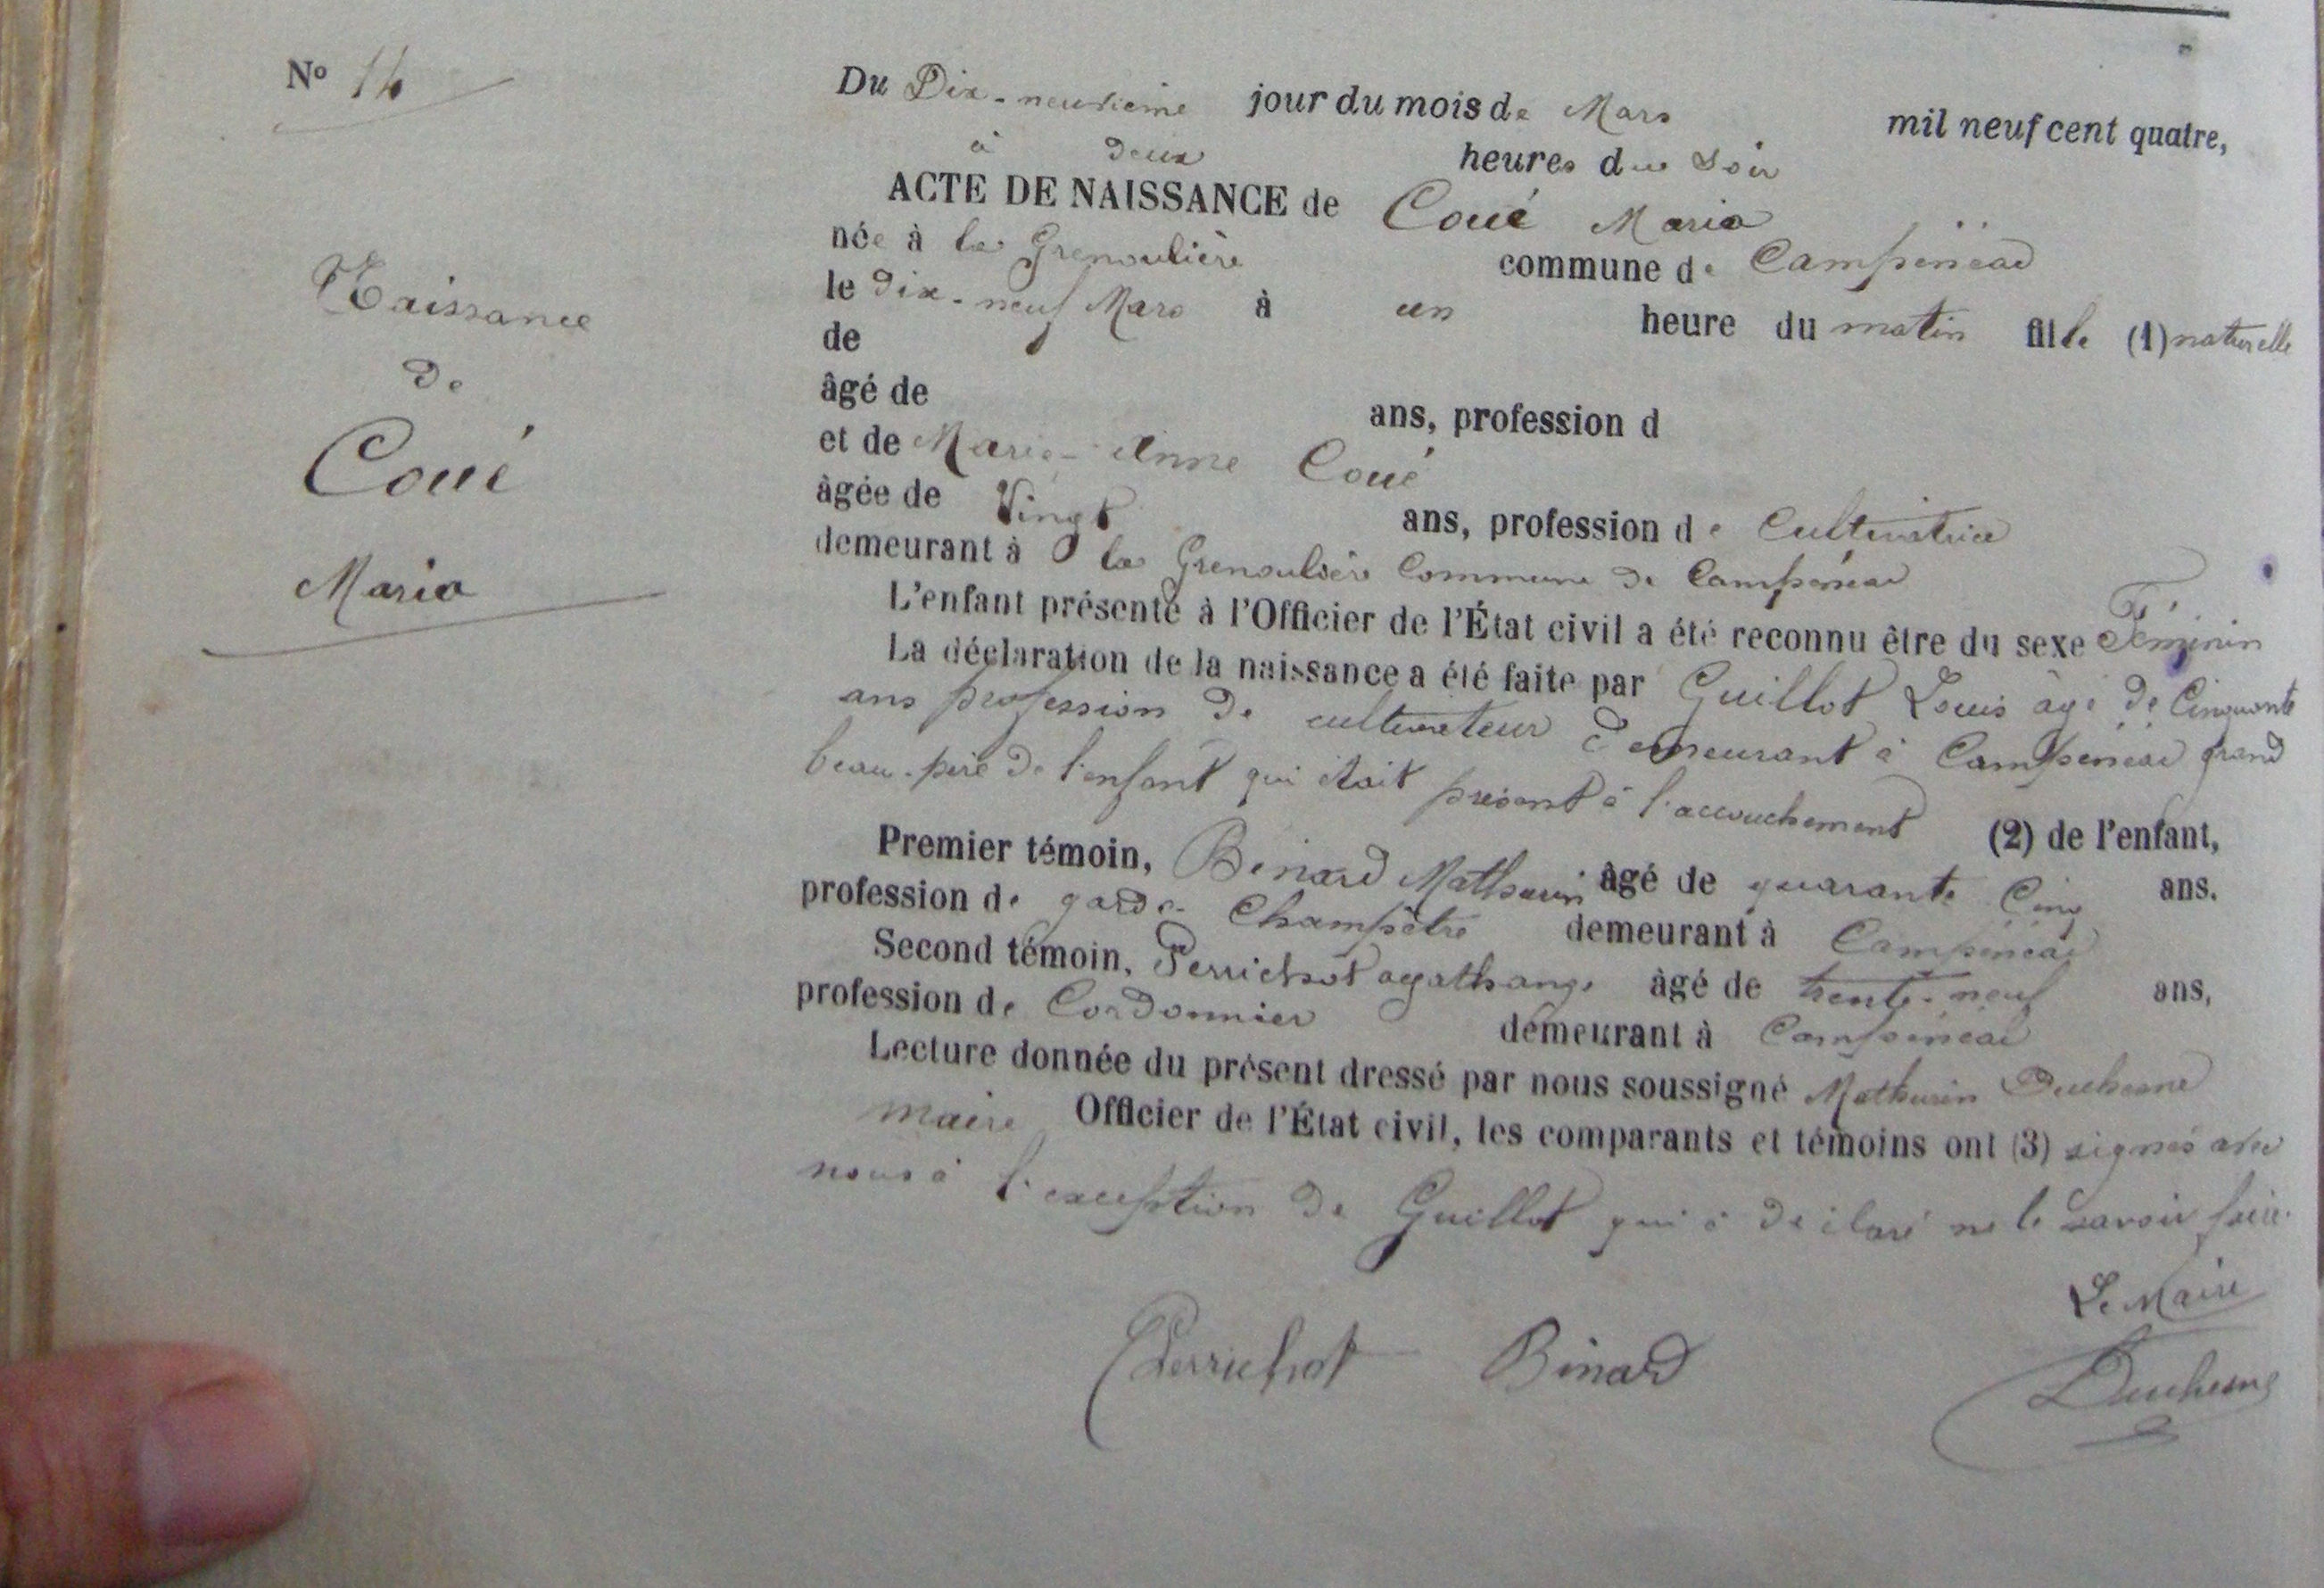 Nº 14
Naissance
de
Coué
Maria
Du Dix-neuvième jour du mois de Mars mil neuf cent quatre,
à deux heures du soir
ACTE DE NAISSANCE de Coué Maria
née à la Grenoulière commune de Campénéac
le dix-neuf Mars à un heure du matin fille (1) naturelle
de
âgé de ans, profession d
et de Marie-Anne Coué
âgée de Vingt ans, profession de Cultivatrice
demeurant à la Grenoulière Commune de Campénéac
L'enfant présenté à l'Officier de l'État civil a été reconnu être du sexe Féminin
La déclaration de la naissance a été faite par Guillot Louis âgé de Cinquante
ans profession de cultivateur demeurant à Campénéac grand
beau-père de l'enfant qui était présent à l'accouchement (2) de l'enfant,
Premier témoin, Binard Mathurin âgé de quarante Cinq ans.
profession de garde Champêtre demeurant à Campénéac
Second témoin, Perrichot agathange âgé de trente-neuf ans,
profession de Cordonnier demeurant à Campénéac
Lecture donnée du présent dressé par nous soussigné Mathurin Duchesne
maire Officier de l'État civil, les comparants et témoins ont (3) signés avec
nous à l'exception de Guillot qui à déclaré ne le savoir faire.
Le Maire
Perrichot Binard Duchesne